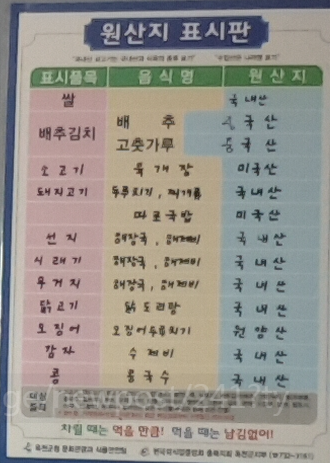 원산지 표시판
표시품목 음식명 원산지
쌀 국내산
배추김치 배추 중국산
고춧가루 중국산
소고기 육개장 미국산
돼지고기 두루치기, 찌개류 국내산
따로국밥 미국산
선지 해장국, 수제비 국내산
시래기 해장국, 수제비 국내산
우거지 해장국, 수제비 국내산
닭고기 닭도리탕 국내산
오징어 오징어두루치기 원양산
감자 수제비 국내산
콩 콩국수 국내산
차릴 때는 먹을 만큼! 먹을 때는 남김없이!
옥천군청 문화관광과 식품안전팀